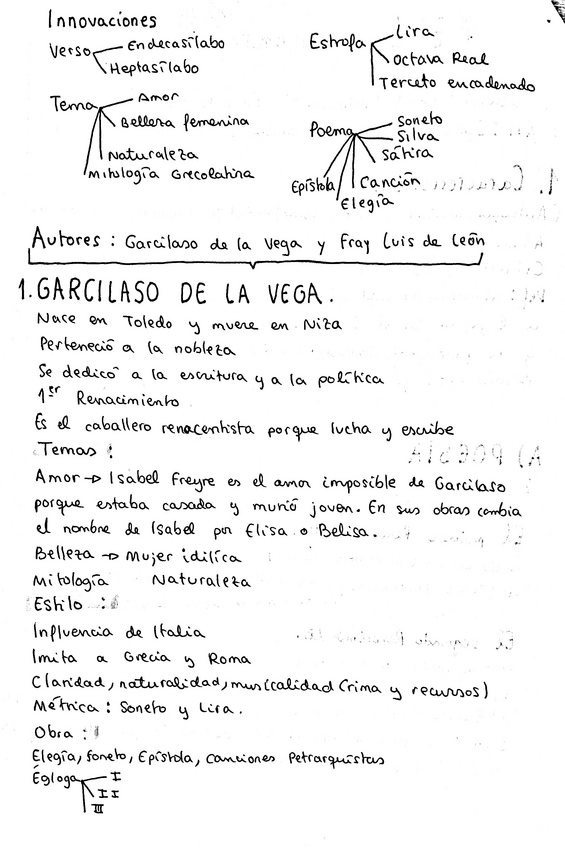 Innovaciones
Verso
Endecasílabo
Heptasílabo
Estrofa
Lira
Octava Real
Terceto encadenado
Tema
Amor
Belleza femenina
Naturaleza
Mitología Grecolatina
Poema
Soneto
Silva
Sátira
Canción
Elegía
Epístola
Autores : Garcilaso de la Vega y Fray Luis de León
1. GARCILASO DE LA VEGA.
Nace en Toledo y muere en Niza
Perteneció a la nobleza
Se dedicó a la escritura y a la política
1er Renacimiento
Es el caballero renacentista porque lucha y escribe
Temas :
Amor → Isabel Freyre es el amor imposible de Garcilaso
porque estaba casada y murió joven. En sus obras cambia
el nombre de Isabel por Elisa o Belisa.
Belleza → Mujer idílica
Mitología Naturaleza
Estilo :
Influencia de Italia
Imita a Grecia y Roma
Claridad, naturalidad, musicalidad (rima y recursos)
Métrica : Soneto y Lira.
Obra :
Elegía, soneto, Epístola, canciones Petrarquistas
Égloga
I
II
III